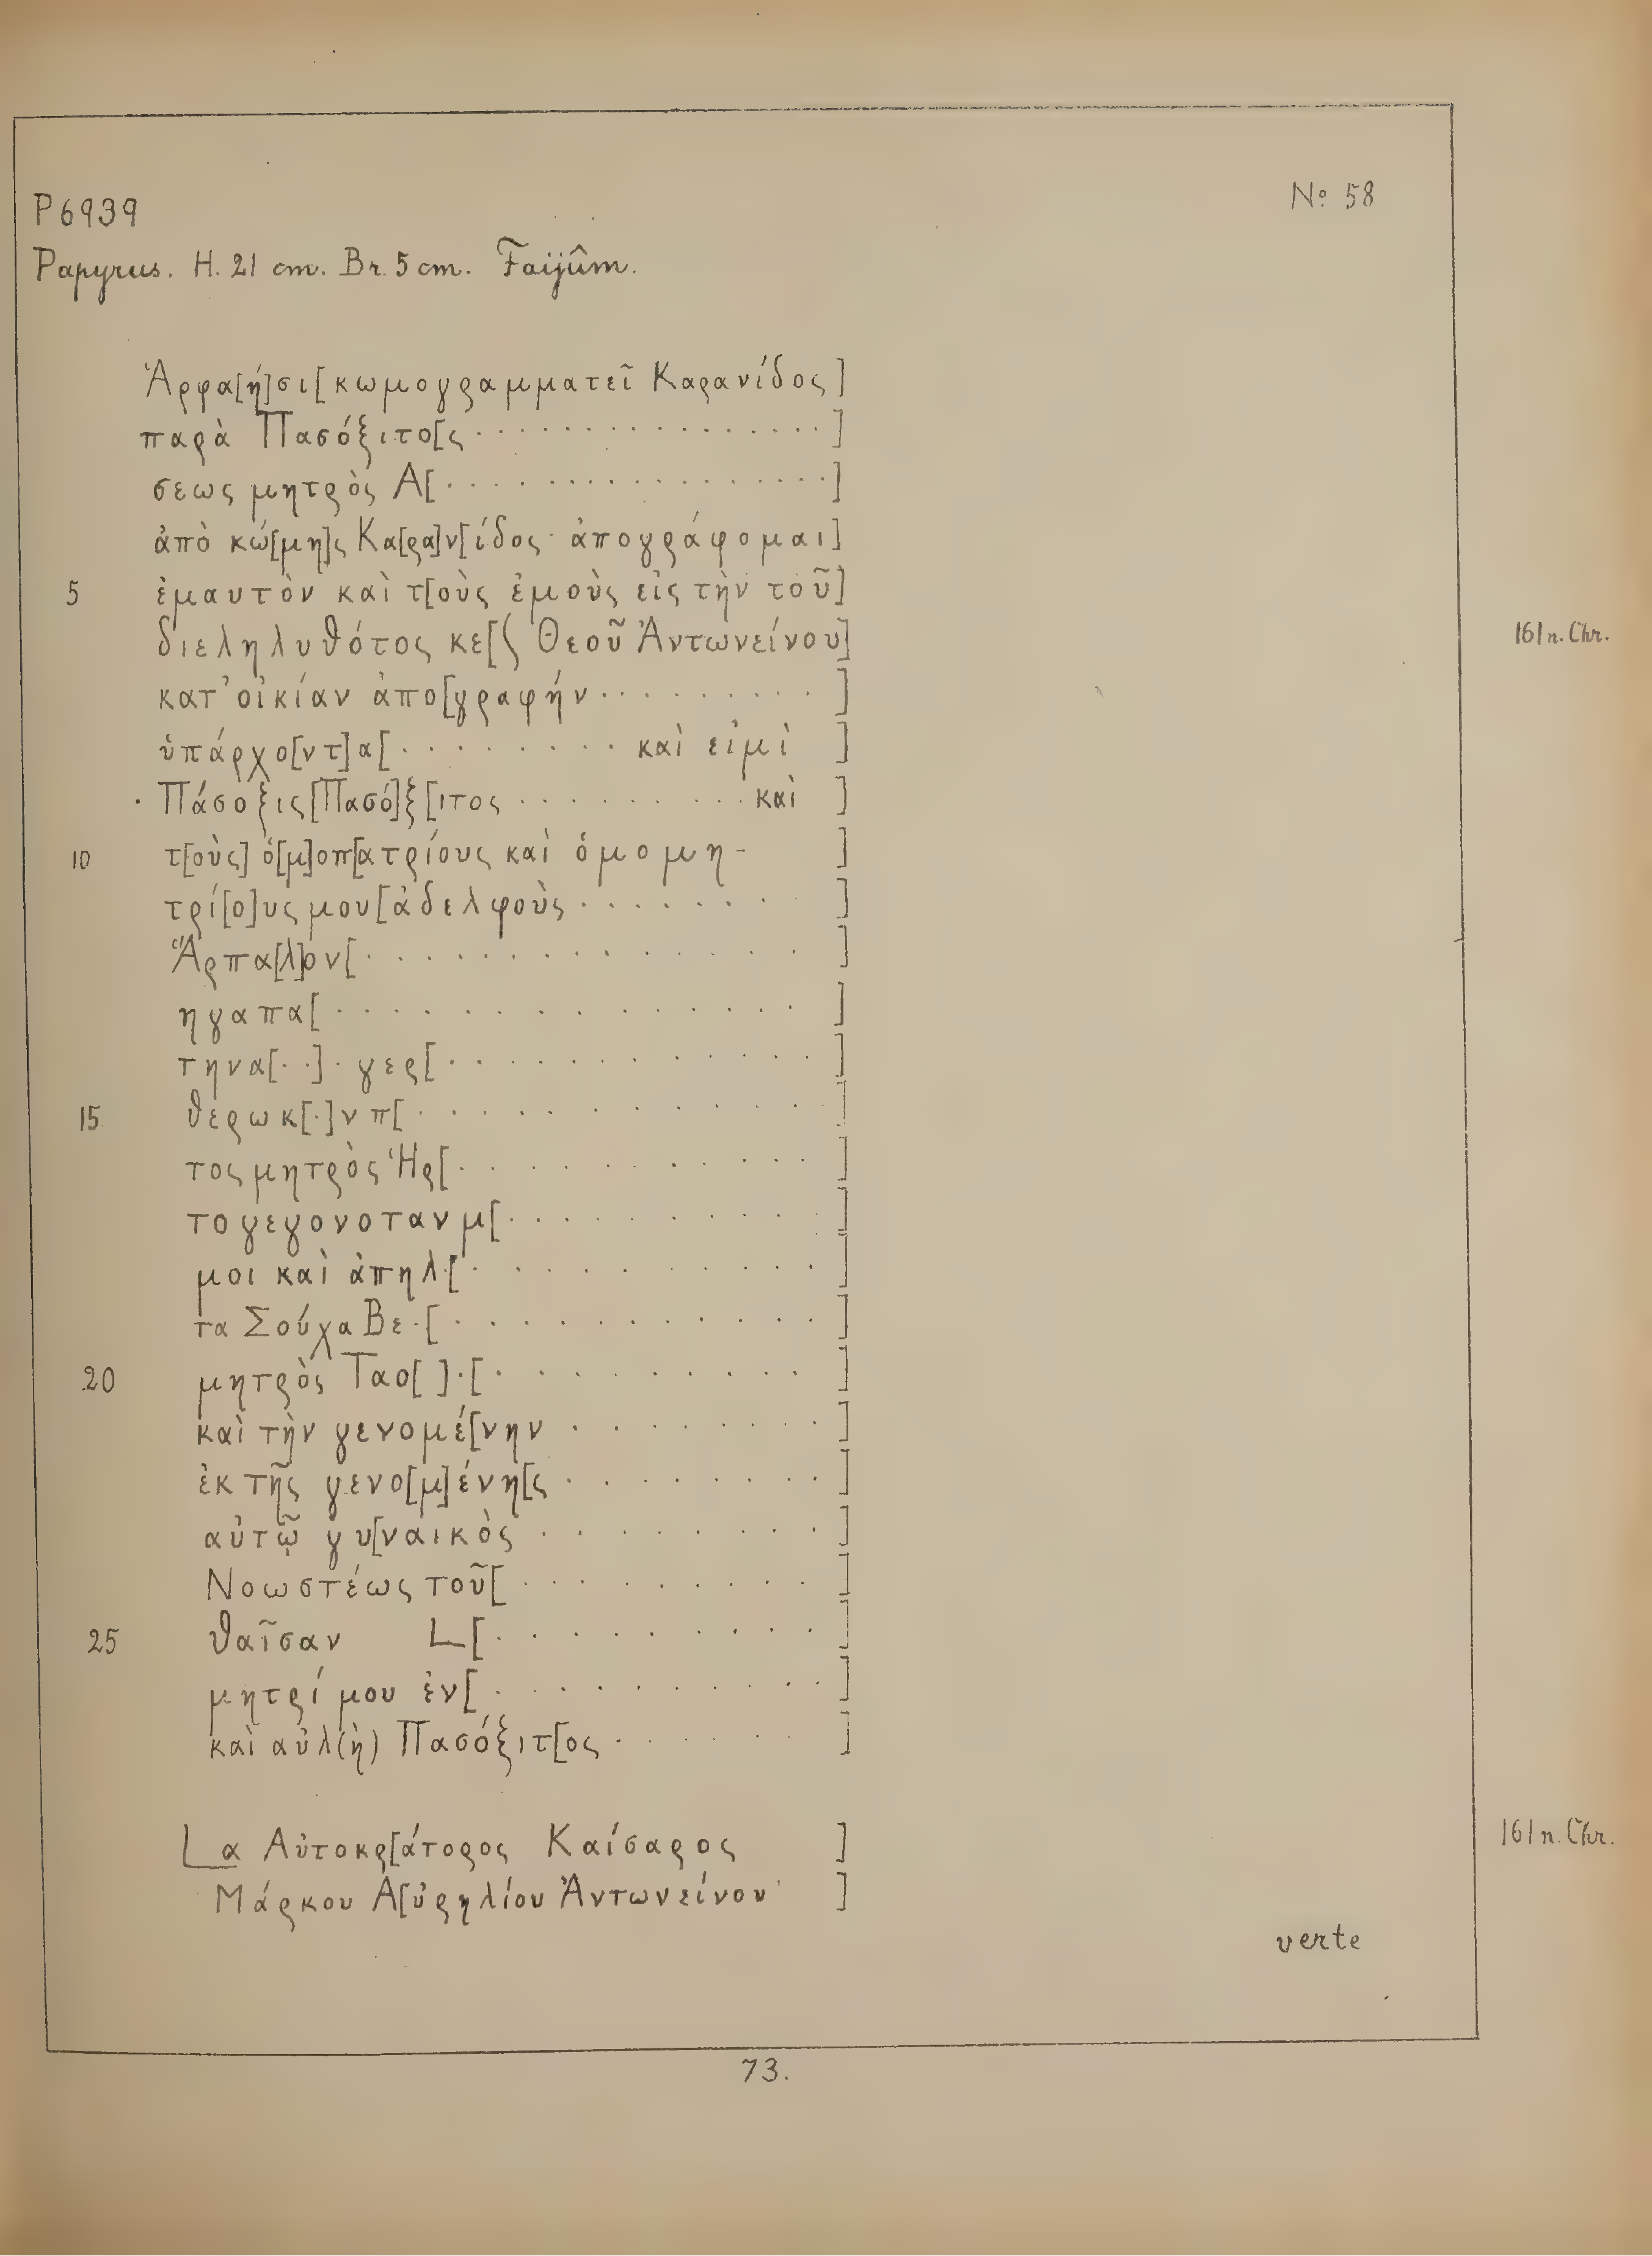 P 6939
Nº 58
Papyrus. H. 21 cm. Br. 5 cm. Faijûm.
Ἁρφα[ή]σι[κωμογραμματεῖ Καρανίδος]
παρὰ Πασόξιτο[ς ................]
σεως μητρὸς Α[.................]
ἀπὸ κώ[μη]ς Κα[ρα]ν[ίδος· ἀπογράφομαι]
5 ἐμαυτὸν καὶ τ[οὺς ἐμοὺς εἰς τὴν τοῦ]
διεληλυθότος κε[ʃ Θεοῦ Ἀντωνείνου] 161 n. Chr.
κατ' οἰκίαν ἀπο[γραφήν .........]
ὑπάρχο[ντ]α[......... καὶ εἰμὶ ]
· Πάσοξις[Πασό]ξ[ιτος .......... καὶ ]
10 τ[οὺς] ὁ[μ]οπ[ατρίους καὶ ὁμομη- ]
τρί[ο]υς μου[ἀδελφοὺς ....... ]
Ἅρπα[λ]ον[............. ]
ηγαπα[.............. ]
τηνα[··]· γερ[............]
15 θερωκ[·]νπ[.............]
τος μητρὸς Ἡρ[...........]
τογεγονοτανμ[..........]
μοι καὶ ἀπηλ·[..........]
τα Σούχα Βε·[...........]
20 μητρὸς Ταο[ ]·[..........]
καὶ τὴν γενομέ[νην ........]
ἐκ τῆς γενο[μ]ένη[ς .......]
αὐτῷ γυ[ναικὸς ........]
Νοωστέως τοῦ[..........]
25 θαῖσαν L[..........]
μητρί μου ἐν[..........]
καὶ αὐλ(ὴ) Πασόξιτ[ος ...... ]
La Αὐτοκρ[άτορος Καίσαρος ] 161 n. Chr.
Μάρκου Α[ὐρηλίου Ἀντωνείνου ]
verte
73.